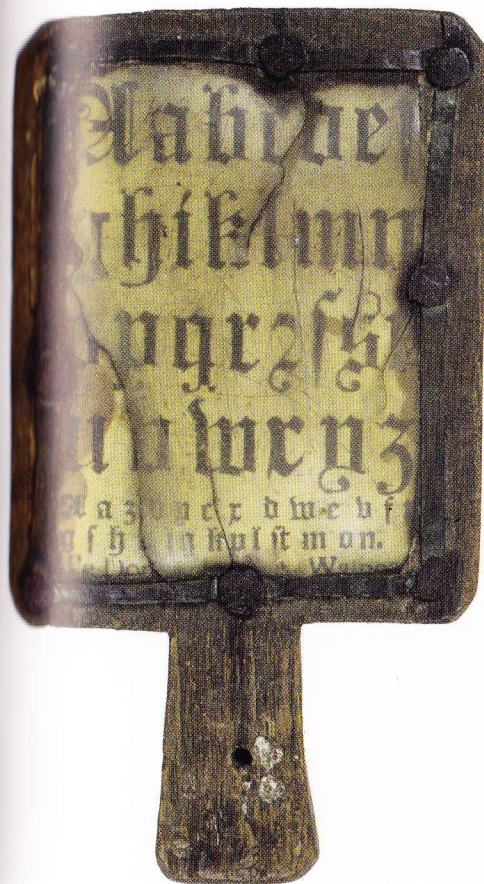 Aabcde
ghiklmn
opqrꝛſs
uvwxyz
A a z b y c x d w e v f
g ſ h i q k p l ſt m o n.